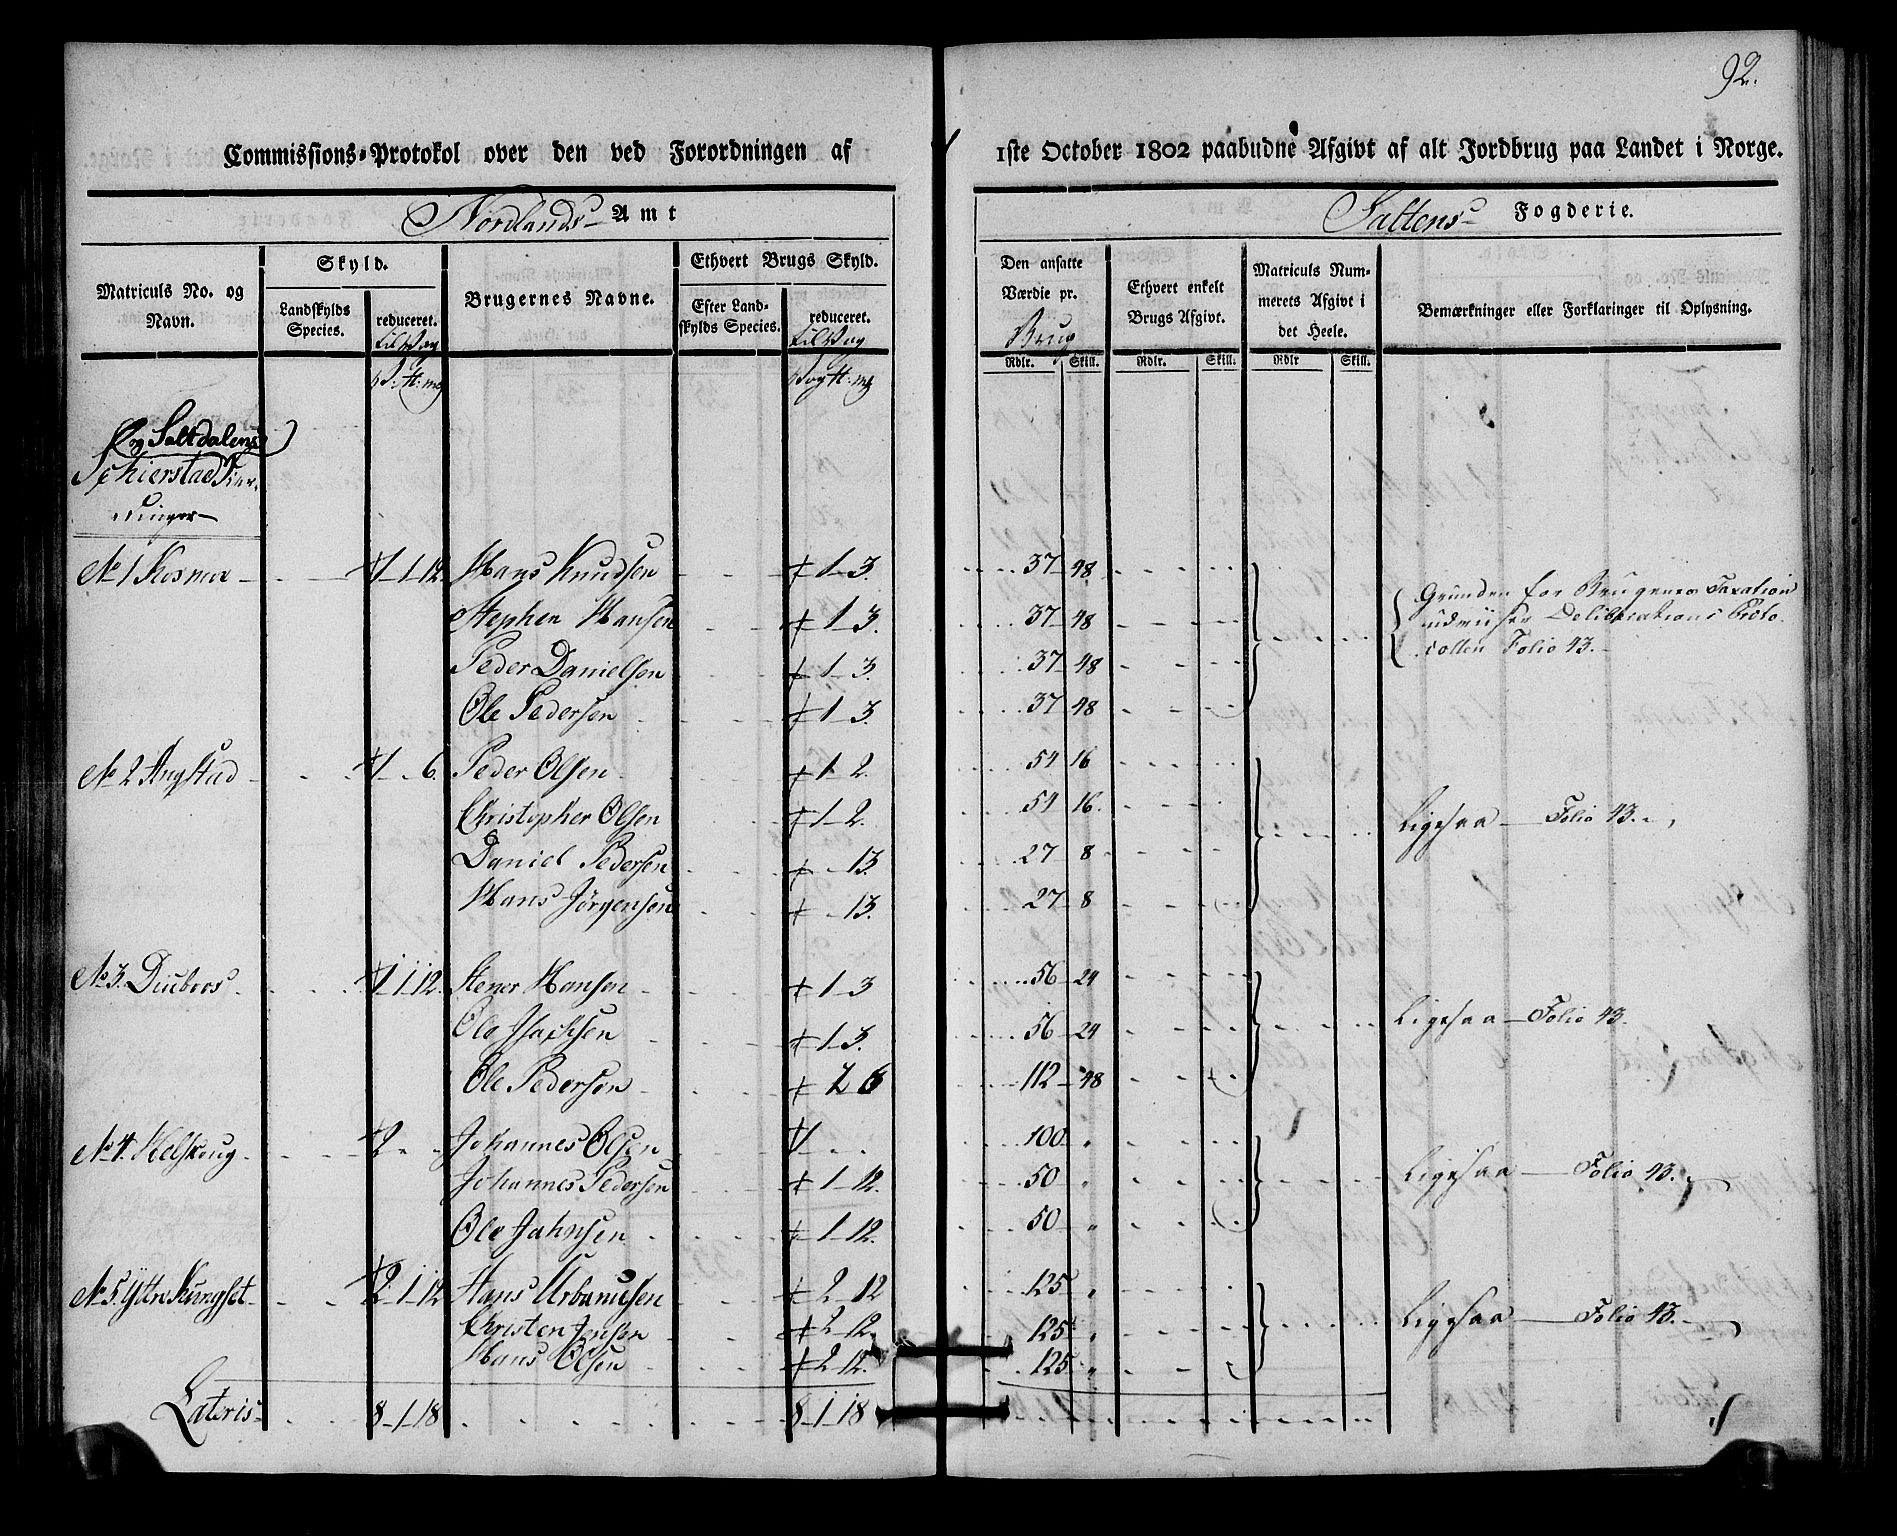 92.
Commissions-Protokol over den ved Forordningen af 1ste October 1802 paabudne Afgivt af alt Jordbrug paa Landet i Norge.
Nordlands Amt
Saltens Fogderie.
Matriculs No. og Navn.
Skyld.
Landskylds Species.
reduceret. til Vog
Brugernes Navne.
Ethvert Brugs Skyld.
Efter Landskylds Species.
reduceret. til Vog
Den ansatte Værdie pr. Brug
Rdlr. Skill.
Ethvert enkelt Brugs Afgivt.
Rdlr. Skill.
Matriculs Nummerets Afgivt i det Heele.
Rdlr Skill.
Bemærkninger eller Forklaringer til Oplysning.
V. ℔: mɡ
Vog ℔: mɡ
Saltdalens
Schierstad
No 1 Kosmoe 1 - 1 - 12. Hans Knudsen 1 - 3. 37 - 48
Stephen Hansen 1 - 3. 37 - 48
Peder Danielsen 1 - 3. 37 - 48
Ole Pedersen 1 - 3. 37 48
Grunden for Brugenes Taxation
udviiser Deliberations Proto-
collen Folio 43.
No 2 Angstad 1 - . 6. Peder Olsen 1 - 2. 54 16
Christopher Olsen 1 - 2. 54 16.
Daniel Pedersen - 13. 27 - 8
Hans Jörgensen - 13. 27 - 8
Ligesaa — Folio 43.
No 3. Diubvos 1 - 1 - 12. Stener Hansen 1 - 3 56 - 24
Ole Isachsen 1 - 3. 56 - 24
Ole Pedersen 2 6 112 - 48
Ligesaa — Folio 43.
No 4. Helskoug 2 - - Johannes Olsen 1 - - 100 "
Johannes Pedersen 1 - 12. 50 "
Ole Jahnsen 1 - 12. 50 - "
Ligesaa — Folio 43.
No 5. Yttre Kungset 2 - 1 - 12 Hans Urbanusen 2 - 12 125 "
Christen Jensen 2 - 12. 125 "
Hans Olsen 2 - 12. 125 "
Ligesaa — Folio 43.
Lateris 8 - 1 - 18 8 - 1 - 18